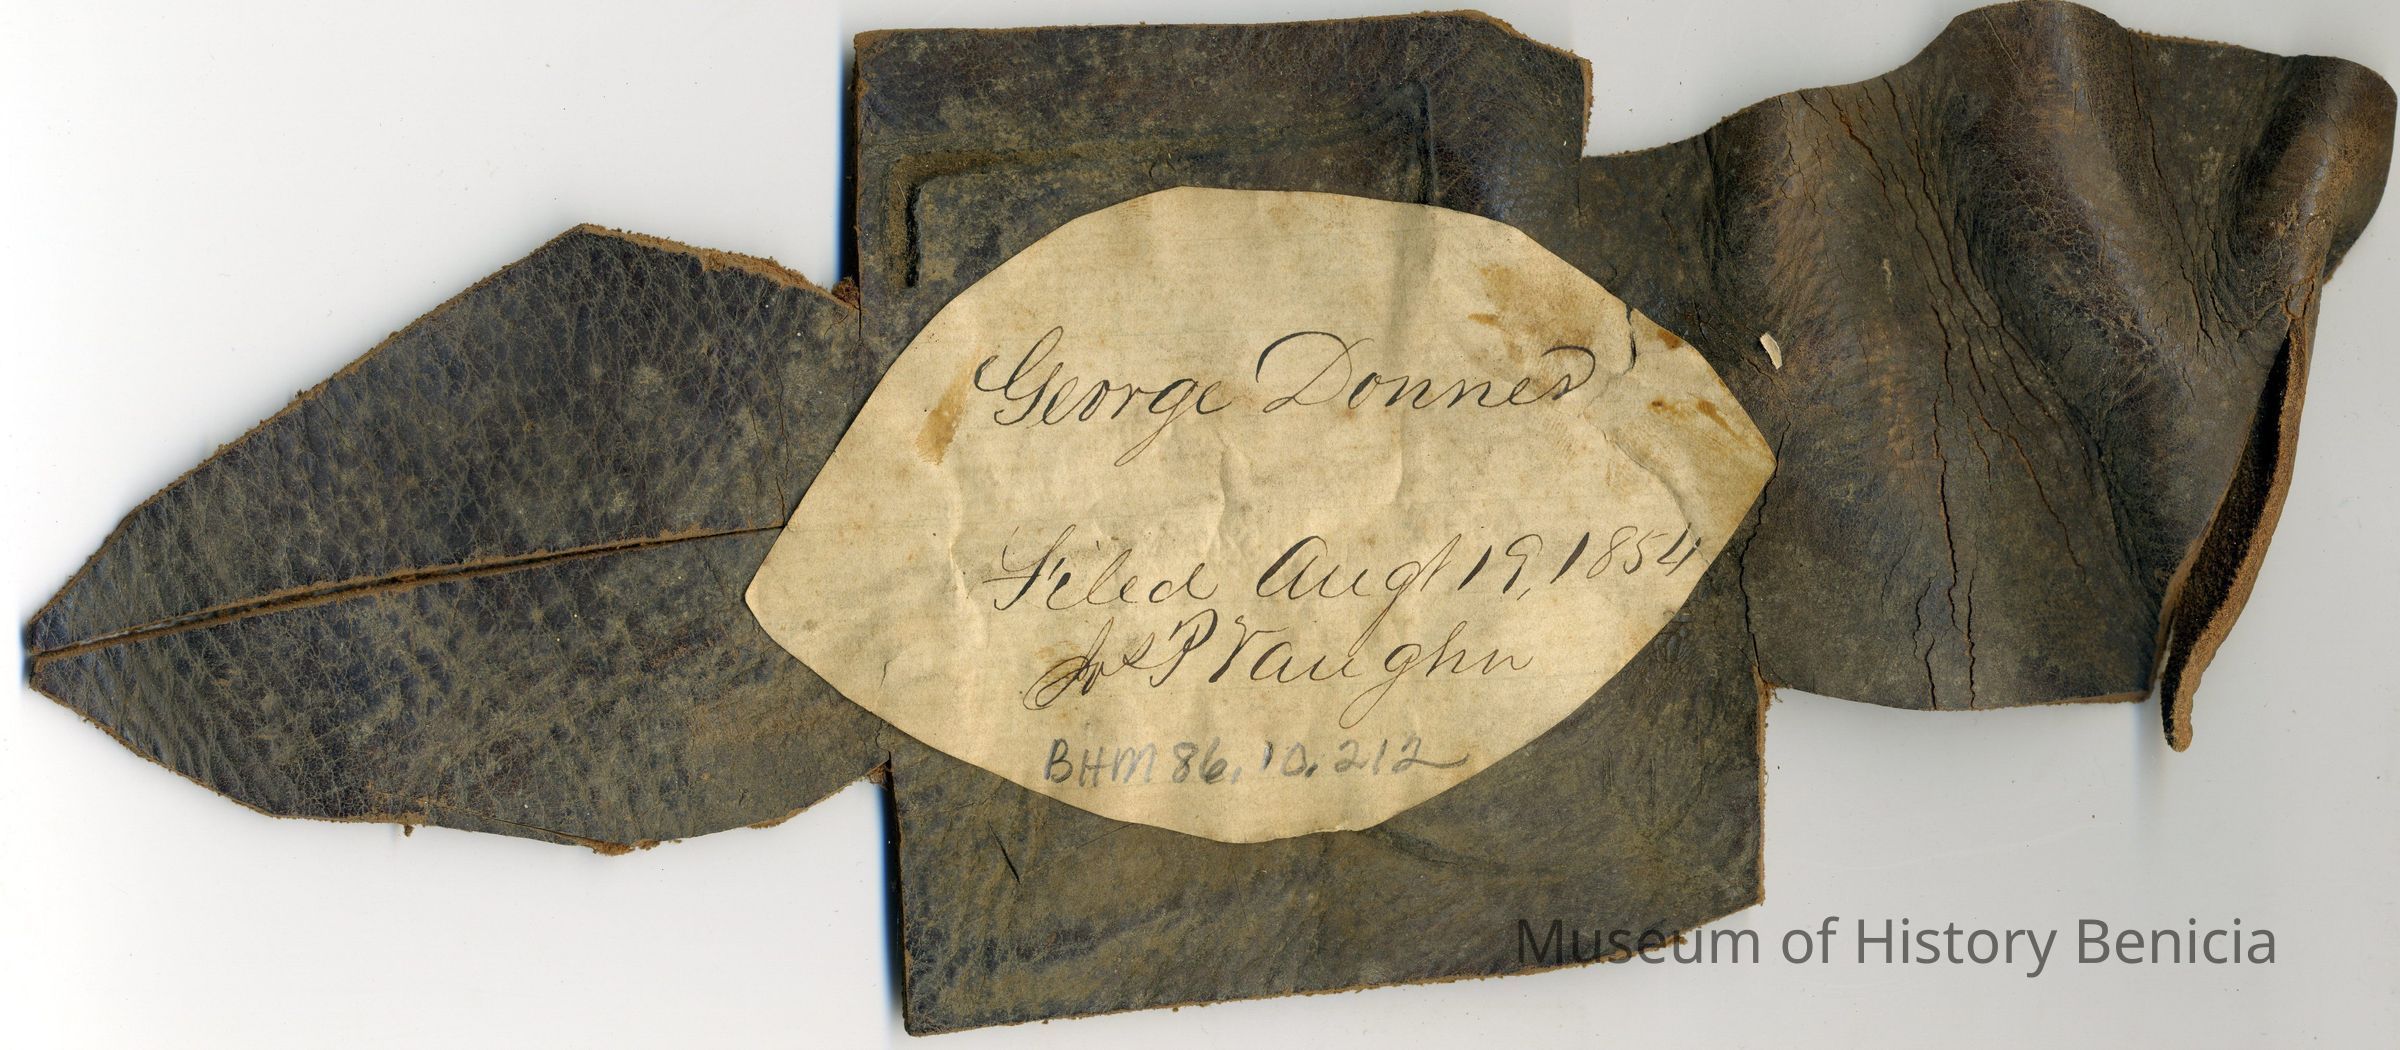 George Donner
Filed Augt 19, 1854
Jos P Vaughn
BHM 86.10.212
Museum of History Benicia